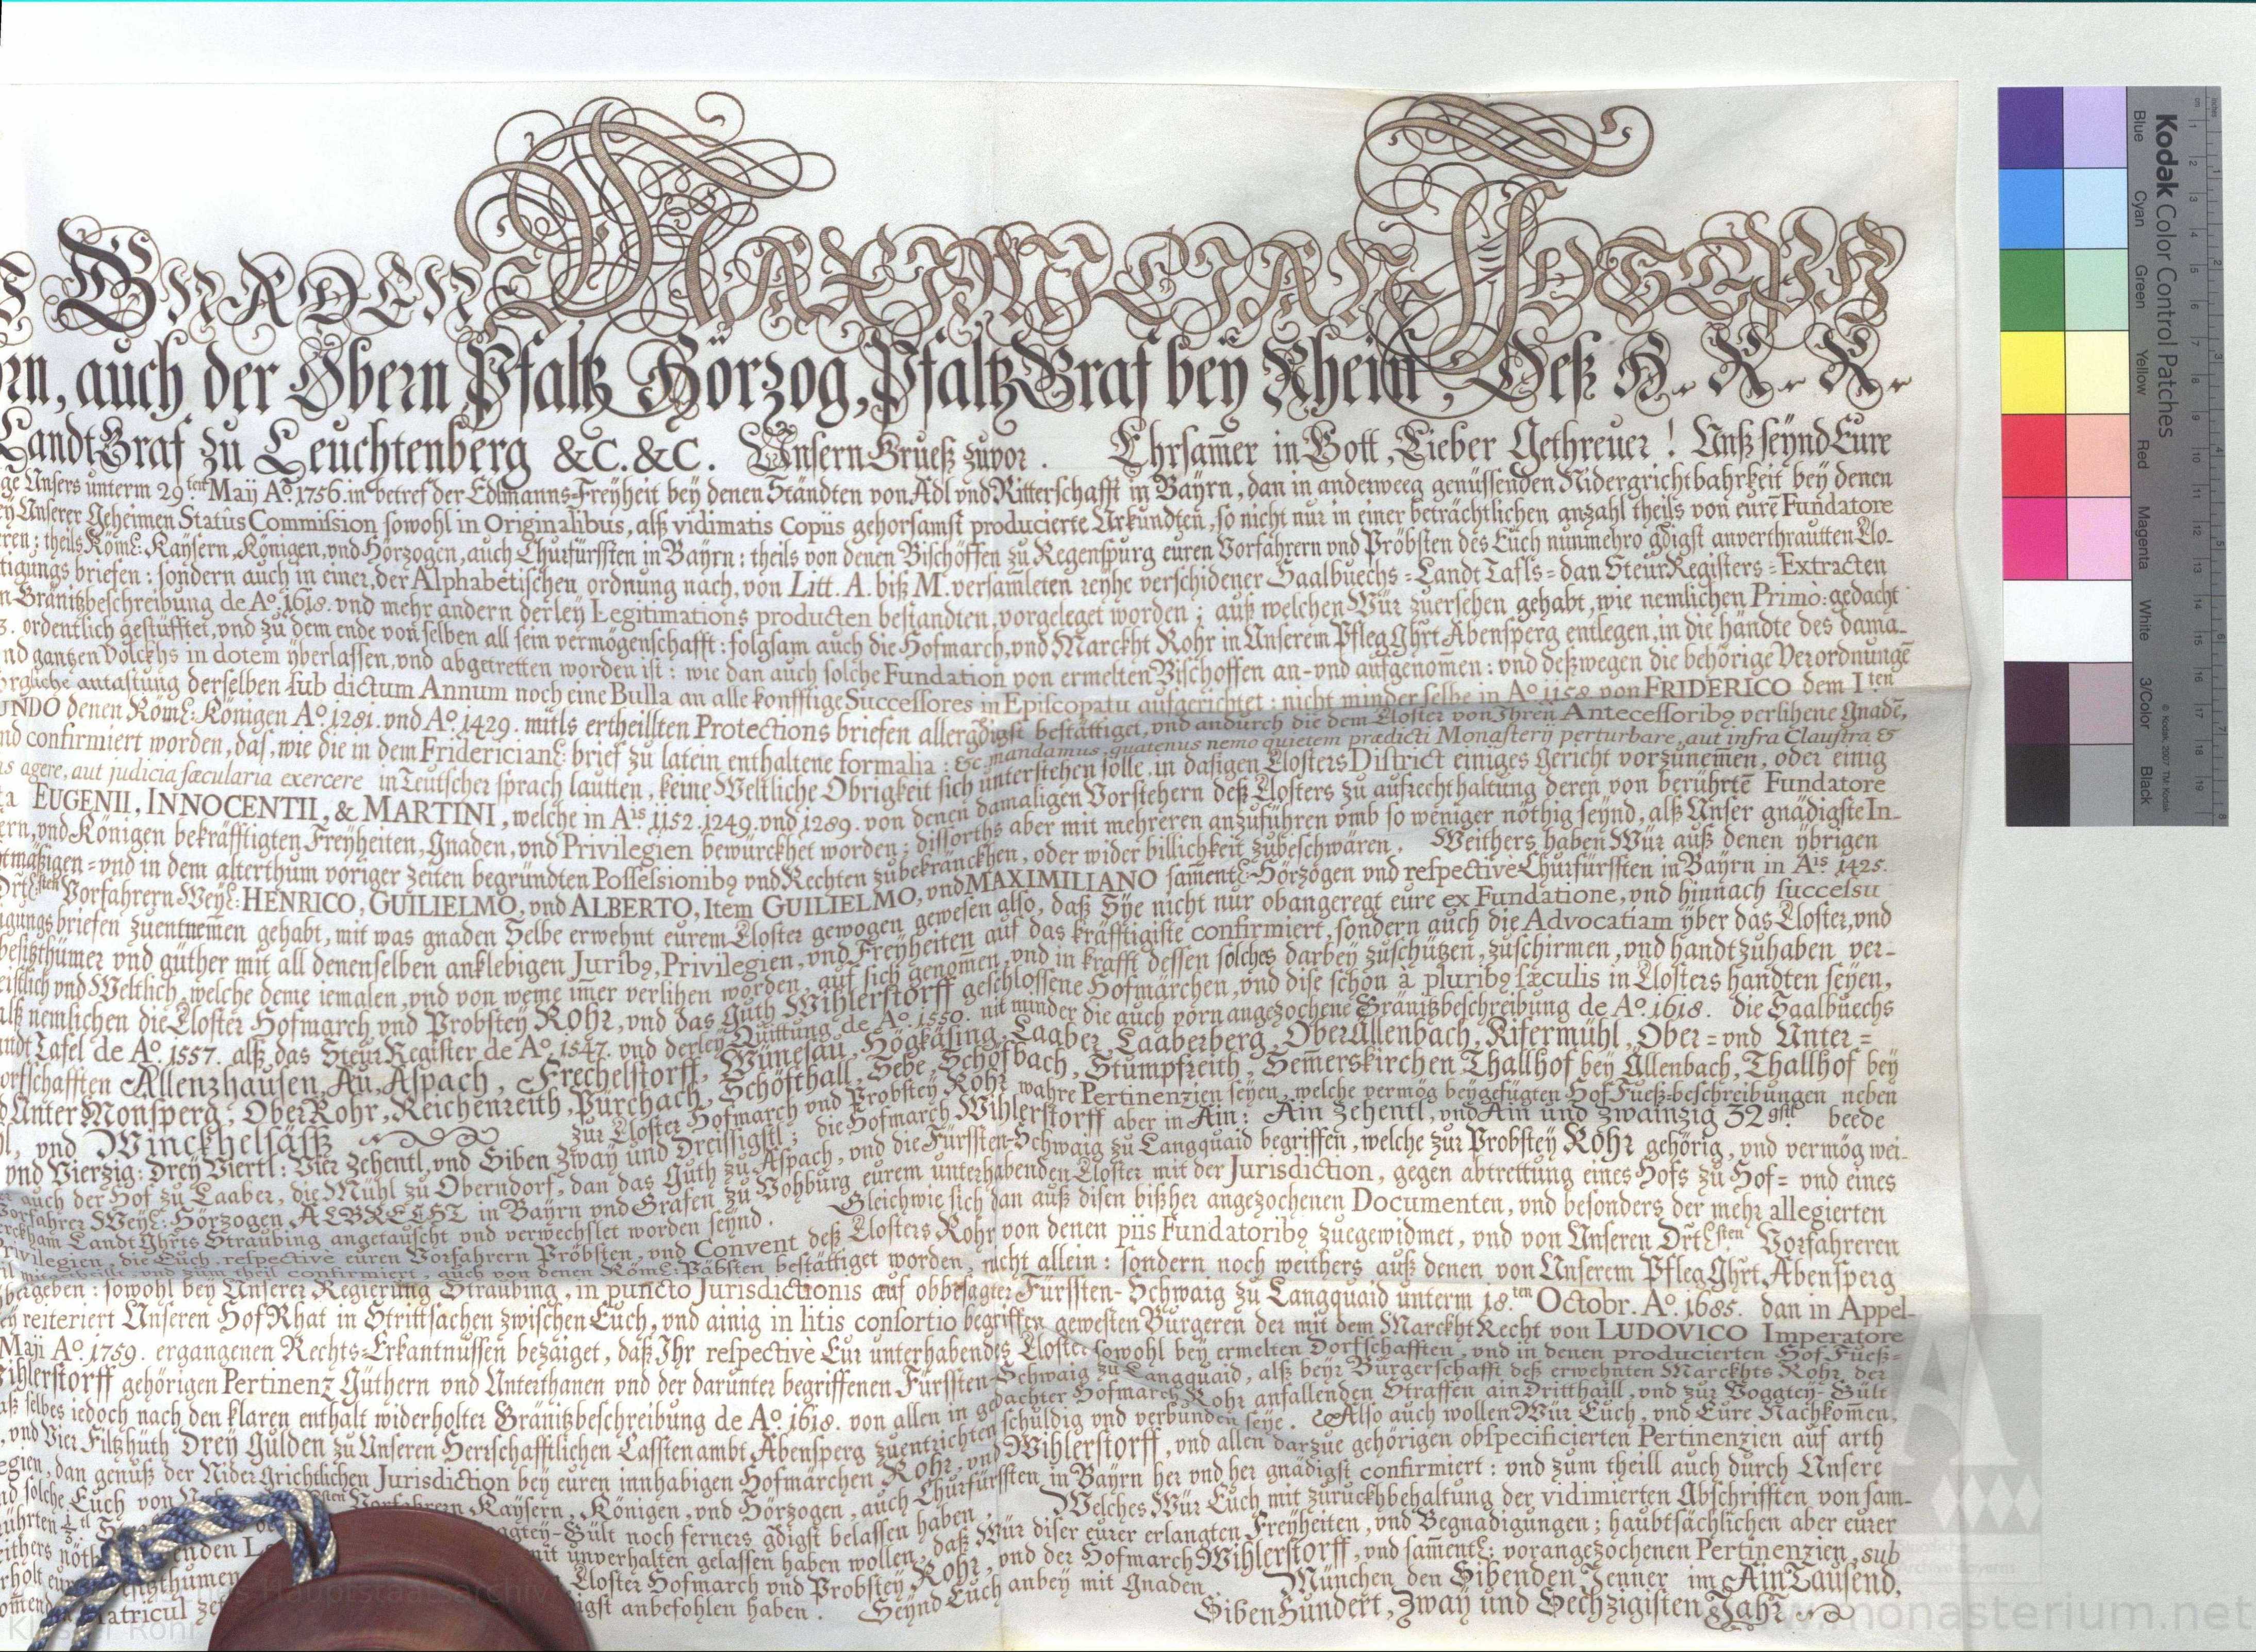 GNADEN MAXIMILIAN JOSEPH
auch der Obern Pfaltz Hörzog, PfaltzGraf bey Rhein, Deß H. R. R.
LandtGraf zu Leuchtenberg &c. &c. Unsern Grueß zuvor. Ehrsam̄er in Gott, Lieber Gethreuer! Unß seÿnd Eure
Unsers unterm 29.ten Maÿ Aō. 1756. in betref der Edlmanns-Freÿheit bey denen Ständten von Adl vnd Ritterschafft in Baÿrn, dan in anderweeg genüssenden Nidergrichtbahrkeit bey denen
Unserer Geheimen Status Commission sowohl in Originalibus, alß vidimatis Copiis gehorsamst producierte Urkundten, so nicht nur in einer beträchtlichen anzahl theils von eurē Fundatore
theils Röml: Kaÿsern, Königen, vnd Hörzogen, auch Churfürssten in Baÿrn: theils von denen Bischöffen zu Regenspurg euren Vorfahrern vnd Pröbsten des Euch nunmehro gdigst anverthrautten Clo-
tigungs briefen: sondern auch in einer, der Alphabetischen ordnung nach, von Litt. A. biß M. versam̄leten reyhe verschidener Saalbuechs-Landt Tafls-dan Steur Registers-Extracten
Gränitzbeschreibung de Aō. 1618. vnd mehr andern derleÿ Legitimations producten bestandten, vorgeleget worden; auß welchen Wür zuersehen gehabt, wie nemlichen Primò: gedacht
ordentlich gestüfftet, vnd zu dem ende von selben all sein vermögenschafft: folgsam auch die Hofmarch, vnd Marckht Rohr in Unserem Pfleg Ghrt Abensperg entlegen, in die händte des dama-
nd gantzen Volckhs in dotem ÿberlassen, vnd abgetretten worden ist: wie dan auch solche Fundation von ermelten Bischoffen an- vnd aufgenom̄en: vnd deßwegen die behörige Verordnungē
antastung derselben sub dictum Annum noch eine Bulla an alle konfftige Successores in Episcopatu aufgerichtet: nicht minder selbe in Aō. 1158. von FRIDERICO dem I.ten
UNDO denen Röml: Königen Aō. 1281. vnd Aō. 1429. mitls ertheillten Protections briefen allergdigst bestättiget, vnd andurch die dem Closter von Ihren Antecessoribq verlihene Gnadē,
nd confirmiert worden, das, wie die in dem Fridericianl: brief zu latein enthaltene formalia: &c mandamus, quatenus nemo quietem prædicti Monasterij perturbare, aut infra Claustra &
agere, aut judicia sæcularia exercere in Teutscher sprach lautten, keine Weltliche Obrigkeit sich unterstehen solle, in dasigen Closters District einiges Gericht vorzunem̄en, oder einig
EUGENII, INNOCENTII, & MARTINI, welche in Ais. 1152. 1249. vnd 1289. von denen damaligen Vorstehern deß Closters zu aufrechthaltung deren von berührtē Fundatore
ern, vnd Königen bekräfftigten Freÿheiten, Gnaden, vnd Privilegien bewürckhet worden; dissorths aber mit mehreren anzuführen vmb so weniger nöthig seÿnd, alß Unser gnädigste In-
tmäßigen- vnd in dem alterthum voriger Zeiten begründten Possessionibq vnd Rechten zubekränckhen, oder wider billichkeit zubeschwären. Weithers haben Wür auß denen ÿbrigen
Vorfahrern Weÿl: HENRICO, GUILIELMO, vnd ALBERTO, Item GUILIELMO, vnd MAXIMILIANO sam̄entl: Hörzogen vnd respectivè Churfürssten in Baÿrn in Ais 1425.
briefen zuentnem̄en gehabt, mit was gnaden Selbe erwehnt eurem Closter gewogen gewesen also, daß Sÿe nicht nur obangeregt eure ex Fundatione, vnd hinnach successu
besitzthümer vnd güther mit all denenselben anklebigen Juribq, Privilegien, vnd Freÿheiten auf das kräfftigiste confirmiert, sondern auch die Advocatiam ÿber das Closter, vnd
vnd Weltlich, welche deme iemalen, vnd von weme im̄er verlihen worden, auf sich genom̄en, vnd in krafft dessen solches darbey zuschützen, zuschirmen, vnd handtzuhaben ver-
alß nemlichen die Closter Hofmarch vnd Probsteÿ Rohr, vnd das Guth Wihlerstorff geschlossene Hofmärchen, vnd dise schon à pluribq sæculis in Closters handten seÿen,
Tafel de Aō. 1557. alß das Steÿr Register de Aō. 1547. vnd derleÿ Quittung de Aō. 1550. nit minder die auch vorn angezochene Gränitzbeschreibung de Aō. 1618. die Saalbuechs
ortschafften Allenzhausen, Au, Aspach, Frechelstorff, Högkäsing, Laaber, Laaberberg, OberAllenbach, Kisermühl, Ober= vnd Unter=
Unter Monsperg, OberRohr, Reichenreith, Purchach, Schöfthall, Sebe, Schöfbach, Stumpfreith, Sem̄erskirchen Thallhof bey Allenbach, Thallhof bey
vnd Winckhelsäß zur Closter Hofmarch vnd Probsteÿ Rohr wahre Pertinenzien seÿen, welche vermög beygefügten Hof Fueß-beschreibungen neben
vnd Vierzig: Dreÿ Viertl: Vier Zehentl, vnd Siben Zwaÿ und Dreissigstl; die Hofmarch Wihlerstorff aber in Ain: Ain Zehentl, vnd Ain und Zwainzig 32gstl beede
auch der Hof zu Laaber, die Mühl zu Oberndorf, dan das Guth zu Aspach, vnd die Fürssten-Schwaig zu Langquaid begriffen, welche zur Probsteÿ Rohr gehörig, vnd vermög wei-
Vorfahrer Weÿl: Hörzogen ALBRECHT in Baÿrn vnd Grafen zu Vohburg eurem unterhabenden Closter mit der Jurisdiction, gegen abtrettung eines Hofs zu Hof= vnd eines
Landt Ghrts Straubing angetauscht vnd verwechslet worden seÿnd. Gleichwie sich dan auß disen bißher angezochenen Documenten, vnd besonders der mehr allegierten
Privilegien, die Euch, respectivè euren Vorfahrern Pröbsten, vnd Convent deß Closters Rohr von denen piis Fundatoribq zuegewidmet, vnd von Unseren Drtlsten Vorfahreren
vnd zum theil confirmiert, auch von denen Röml: Päbsten bestättiget worden, nicht allein: sondern noch weithers auß denen von Unserem Pfleg Ghrt Abensperg
sowohl bey Unserer Regierung Straubing, in puncto Jurisdictionis auf obbesagter Fürssten-Schwaig zu Langquaid unterm 18.ten Octobr. Aō. 1685. dan in Appel-
reiteriert Unseren HofRhat in Strittsachen zwischen Euch, vnd ainig in litis consortio begriffen gewesten Burgeren der mit dem Marckht Recht von LUDOVICO Imperatore
Maji Aō. 1759. ergangenen Rechts-Erkantnussen bezaiget, daß Ihr respectivè Eur unterhabendes Closter sowohl bey ermelten Dorfschafften, vnd in denen producierten Hof Fueß-
Wihlerstorff gehörigen Pertinenz Güthern vnd Unterthanen vnd der darunter begriffenen Fürssten-Schwaig zu Langquaid, alß beyr Burgerschafft deß erwehnten Marckhts Rohr, der
selbes iedoch nach den klaren enthalt widerholter Gränitzbeschreibung de Aō. 1618. von allen in gedachter Hofmarch Rohr anfallenden Straffen ain Dritthaill, vnd zur Voggteÿ-Gült
vnd Vier Filtzhüth Dreÿ Gulden zu Unseren Herrschafftlichen Casstenambt Abensperg zuentrichten schuldig vnd verbunden seÿe. Also auch wollen Wür Euch, vnd Eure Nachkom̄en,
dan genuß der Nider Grichtlichen Jurisdiction bey euren innhabigen Hofmärchen Rohr, vnd Wihlerstorff, vnd allen darzue gehörigen obspecificierten Pertinenzien auf arth
solche Euch von Vorfahrern Kaÿsern, Königen, vnd Hörzogen, auch Churfürssten in Baÿrn her vnd her gnädigst confirmiert: vnd zum theill auch durch Unsere
Gült noch ferners gdigst belassen haben. Welches Wür Euch mit zuruckhbehaltung der vidimierten Abschrifften von sam-
unverhalten gelassen haben wollen, daß Wür diser eurer erlangten Freÿheiten, vnd Begnadigungen; haubtsächlichen aber eurer
Closter Hofmarch vnd Probsteÿ Rohr, vnd der Hofmarch Wihlerstorff, vnd sam̄entl: vorangezochenen Pertinenzien, sub
anbefohlen haben. Seÿnd Euch anbey mit Gnaden. München den Sibenden Jenner im Ain Tausend,
Siben Hundert, Zwaÿ und Sechzigisten Jahr
Kodak Color Control Patches
Blue Cyan Green Yellow Red Magenta White 3/Color Black
© Kodak, 2007 TM: Kodak
www.monasterium.net